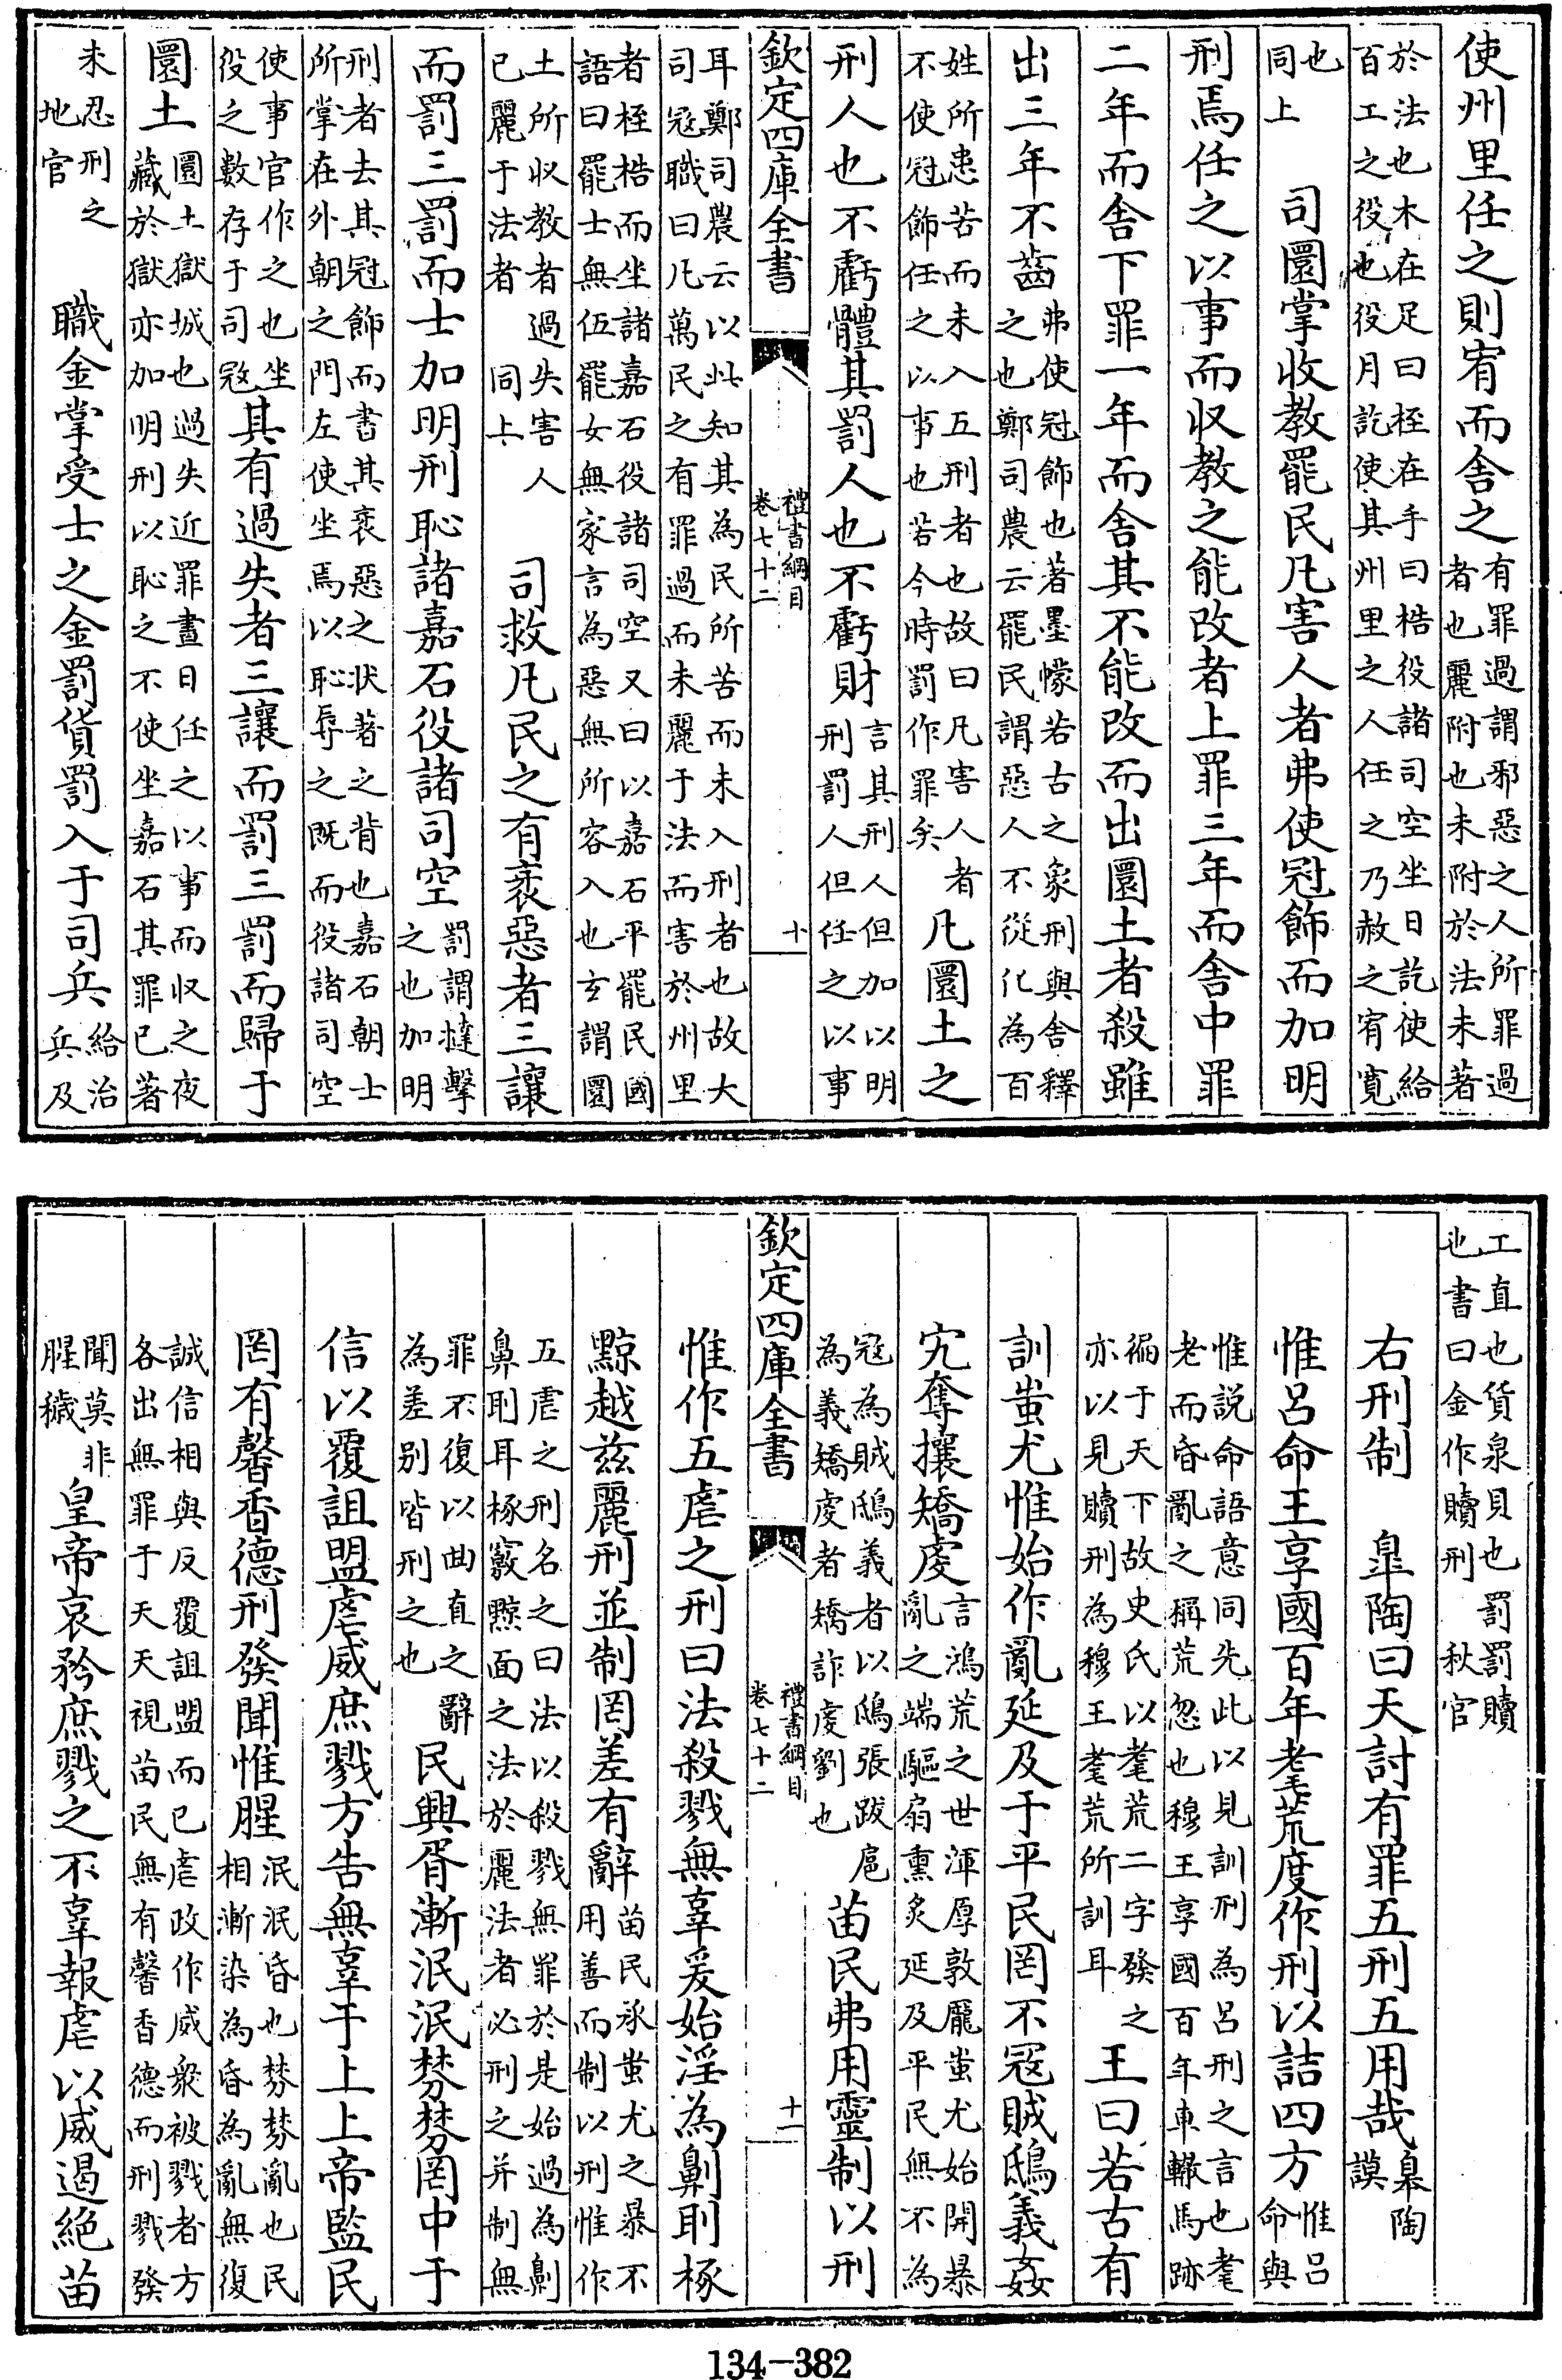 使州里任之則宥而舍之有罪過謂邪惡之人所罪過者也麗附也未附於法未著
於法也木在足曰桎在手曰梏役諸司空坐日訖使給百工之役也役月訖使其州里之人任之乃赦之宥寬
也同上　司圜掌收教罷民凡害人者弗使冠飾而加明
刑焉任之以事而収教之能改者上罪三年而舍中罪
二年而舍下罪一年而舍其不能改而出圜土者殺雖
出三年不齒弗使冠飾也著墨幪若古之象刑與舍釋之也鄭司農云罷民謂惡人不從化為百
姓所患苦而未入五刑者也故曰凡害人者不使冠飾任之以事也若今時罰作罪矣　凡圜土之
刑人也不虧體其罰人也不虧財言其刑人但加以明刑罰人但任之以事
欽定四庫全書　禮書綱目　卷七十二　十
耳鄭司農云以此知其為民所苦而未入刑者也故大司冦職曰凡萬民之有罪過而未麗于法而害於州里
者桎梏而坐諸嘉石役諸司空又曰以嘉石平罷民國語曰罷士無伍罷女無家言為惡無所容入也玄謂圜
土所収教者過失害人已麗于法者同上　司救凡民之有衺惡者三讓
而罰三罰而士加明刑恥諸嘉石役諸司空罰謂撻擊之也加明
刑者去其冠飾而書其衺惡之狀著之背也嘉石朝士所掌在外朝之門左使坐焉以恥辱之既而役諸司空
使事官作之也坐役之數存于司冦其有過失者三讓而罰三罰而歸于
圜土圜土獄城也過失近罪晝日任之以事而収之夜藏於獄亦加明刑以恥之不使坐嘉石其罪已著
未忍刑之地官　職金掌受士之金罰貨罰入于司兵給治兵及
工直也貨泉貝也罰罰贖也書曰金作贖刑秋官
右刑制　臯陶曰天討有罪五刑五用哉臯陶謨
惟呂命王享國百年耄荒度作刑以詰四方惟呂命與
惟說命語意同先此以見訓刑為呂刑之言也耄老而昏亂之稱荒忽也穆王享國百年車轍馬跡
徧于天下故史氏以耄荒二字發之亦以見贖刑為穆王耄荒所訓耳　王曰若古有
訓蚩尤惟始作亂延及于平民罔不冦賊鴟義姦
宄奪攘矯虔言鴻荒之世渾厚敦厖蚩尤始開暴亂之端驅扇熏炙延及平民無不為
冦為賊鴟義者以鴟張跋扈為義矯虔者矯詐虔劉也　苗民弗用靈制以刑
欽定四庫全書　禮書綱目　卷七十二　十一
惟作五虐之刑曰法殺戮無辜爰始淫為劓刵椓
黥越茲麗刑並制罔差有辭苗民承蚩尤之暴不用善而制以刑惟作
五虐之刑名之曰法以殺戮無罪於是始過為劓鼻刵耳椓竅黥面之法於麗法者必刑之并制無
罪不復以曲直之辭為差別皆刑之也　民興胥漸泯泯棼棼罔中于
信以覆詛盟虐威庶戮方告無辜于上上帝監民
罔有馨香德刑發聞惟腥泯泯昏也棼棼亂也民相漸染為昏為亂無復
誠信相與反覆詛盟而已虐政作威衆被戮者方各出無罪于天天視苗民無有馨香德而刑戮發
聞莫非腥穢　皇帝哀矜庶戮之不辜報虐以威遏絕苗
134-382